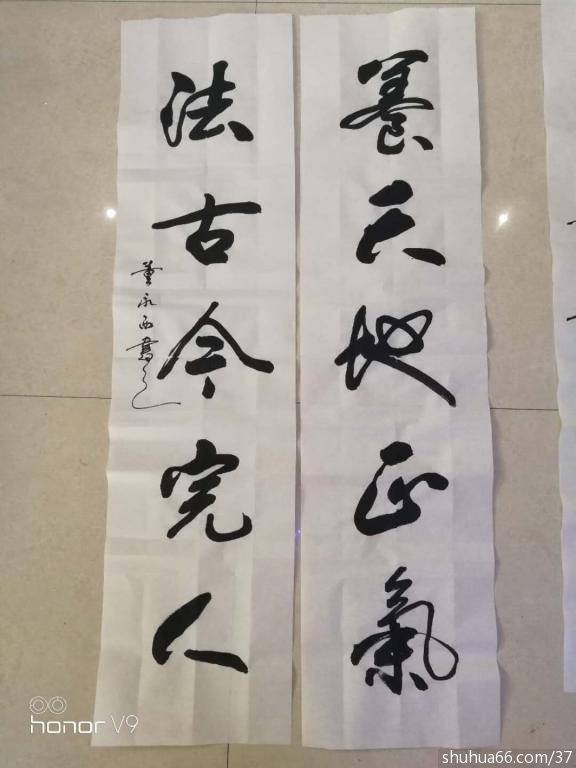 養天地正氣
法古今完人
董永西書之
honor V9
shuhua66.com/37